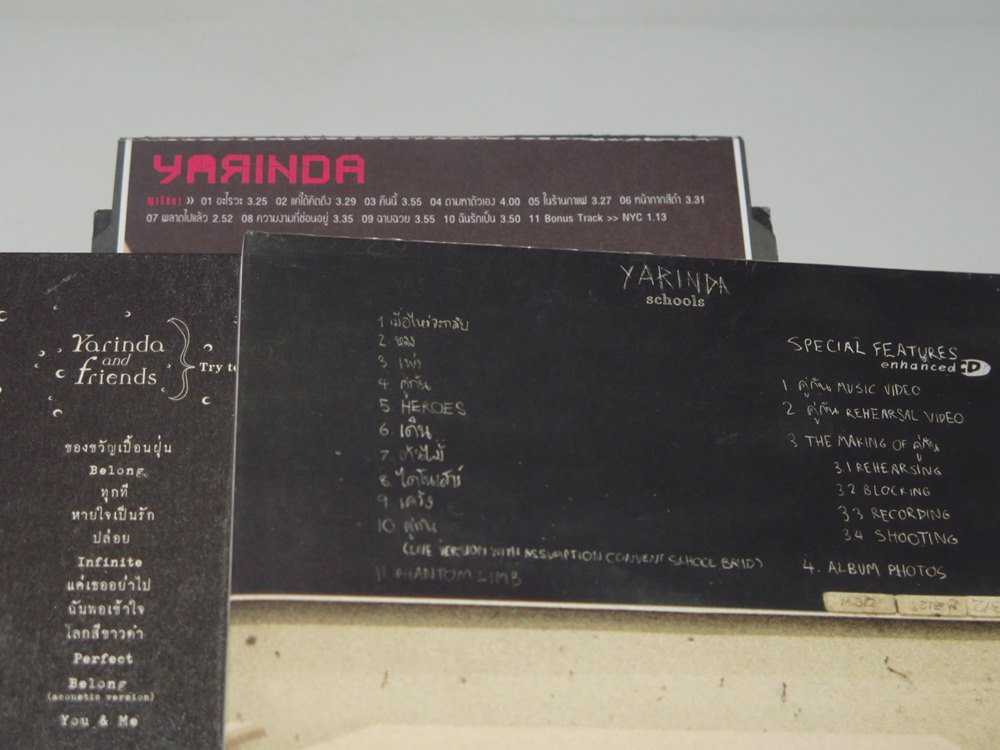 YARINDA
ญารินดา >> 01 อะไรวะ 3.25 02 แค่ได้คิดถึง 3.29 03 คืนนี้ 3.55 04 ตามหาตัวเอง 4.00 05 ในร้านกาแฟ 3.27 06 หน้ากากสีดำ 3.31
07 พลาดไปแล้ว 2.52 08 ความงามที่ซ่อนอยู่ 3.35 09 ฉาบฉวย 3.55 10 ฉันรักเป็น 3.50 11 Bonus Track >> NYC 1.13
Yarinda
and
friends
Try to
ของขวัญเปื้อนฝุ่น
Belong
ทุกที
หายใจเป็นรัก
ปล่อย
Infinite
แค่เธออย่าไป
ฉันพอเข้าใจ
โลกสีขาวดำ
Perfect
Belong
(acoustic version)
You & Me
YARINDA
schools
1 เมื่อไหร่จะกลับ
2.
3 เหงา
4 คู่กัน
5 HEROES
6. เดิน
7. ต้นไม้
8 ไดโนเสาร์
9 เคว้ง
10 คู่กัน
(LIVE VERSION WITH ASSUMPTION CONVENT SCHOOL BAND)
11 PHANTOM LIMB
SPECIAL FEATURES
enhanced CD
1. คู่กัน MUSIC VIDEO
2 คู่กัน REHEARSAL VIDEO
3. THE MAKING OF คู่กัน
3.1 REHEARSING
3.2 BLOCKING
3.3 RECORDING
3.4 SHOOTING
4. ALBUM PHOTOS